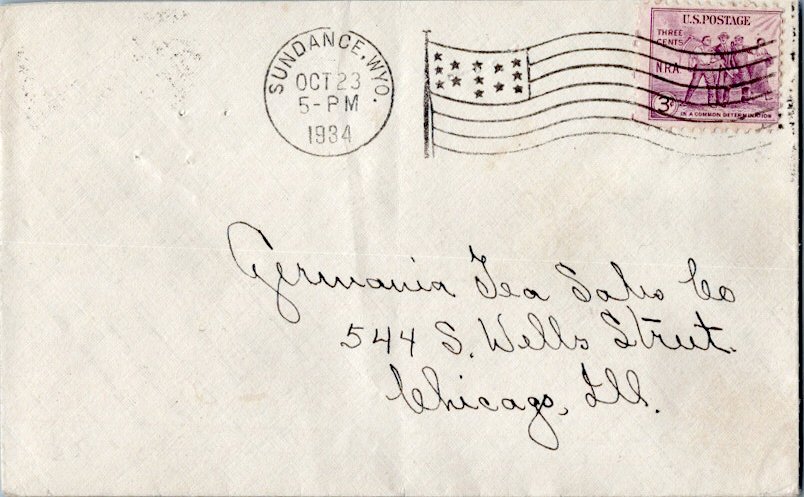 SUNDANCE, WYO.
OCT 23
5-PM
1934
U.S. POSTAGE
THREE
CENTS
NRA
3¢
IN A COMMON DETERMINATION
Germania Tea Sales Co
544 S. Wells Street.
Chicago, Ill.